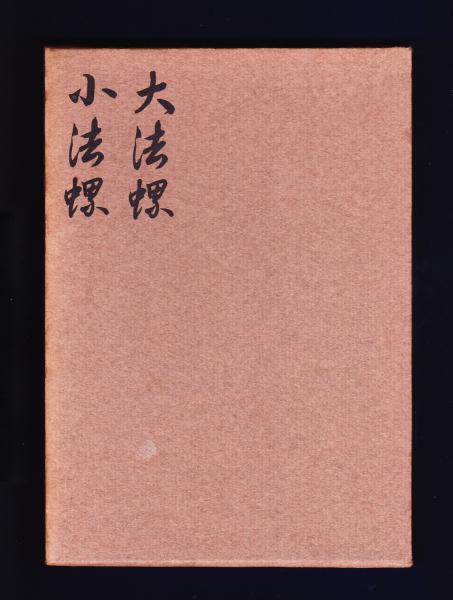 大法螺
小法螺